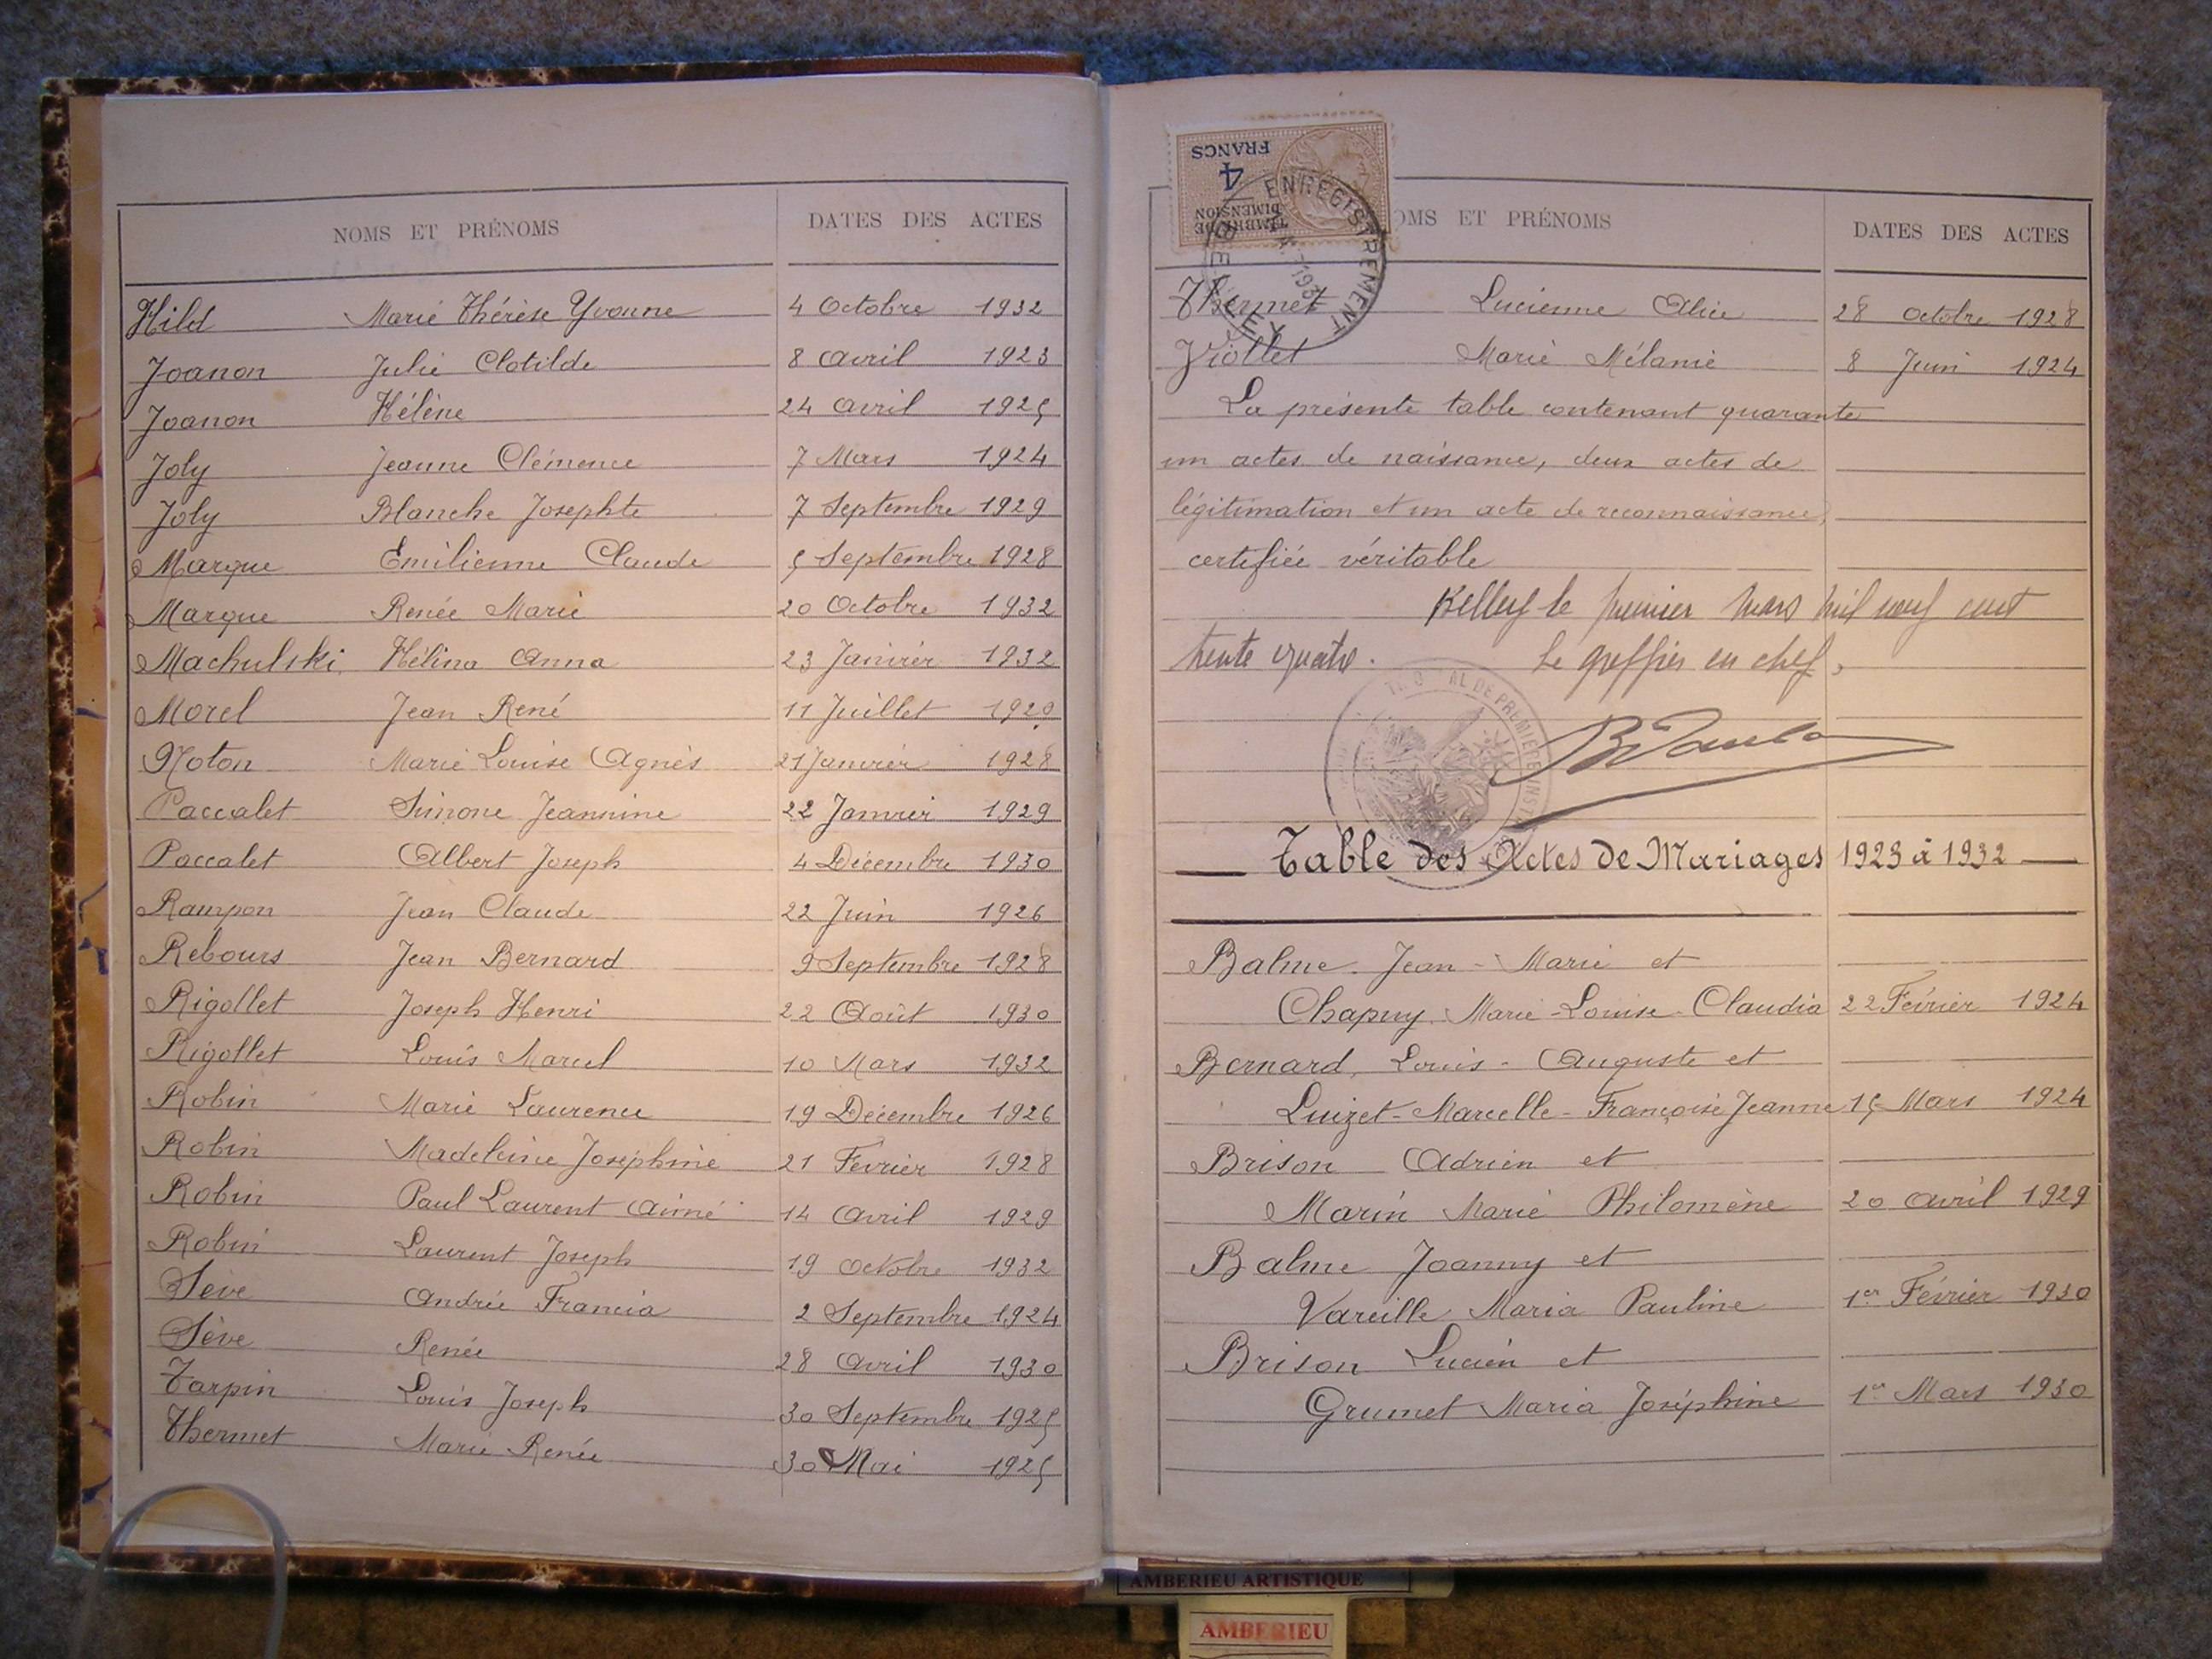 NOMS ET PRÉNOMS DATES DES ACTES
Hild Marie Thérèse Yvonne 4 Octobre 1932
Joanon Julie Clotilde 8 Avril 1923
Joanon Hélène 24 Avril 1925
Joly Jeanne Clémence 7 Mars 1924
Joly Blanche Josephte 7 Septembre 1929
Marque Emilienne Claude 5 Septembre 1928
Marque Renée Marie 20 Octobre 1932
Machulski Hélina Anna 23 Janvier 1932
Morel Jean René 11 Juillet 1929
Noton Marie Louise Agnès 21 Janvier 1928
Paccalet Simone Jeannine 22 Janvier 1929
Paccalet Albert Joseph 4 Décembre 1930
Rampon Jean Claude 22 Juin 1926
Rebours Jean Bernard 9 Septembre 1928
Rigollet Joseph Henri 22 Août 1930
Rigollet Louis Marcel 10 Mars 1932
Robin Marie Laurence 19 Décembre 1926
Robin Madeleine Joséphine 21 Fevrier 1928
Robin Paul Laurent Aimé 14 Avril 1929
Robin Laurent Joseph 19 Octobre 1932
Sève Andrée Francia 2 Septembre 1924
Sève Renée 28 Avril 1930
Tarpin Louis Joseph 30 Septembre 1925
Thermet Marie Renée 30 Mai 1925
4 FRANCS
TIMBRE DE DIMENSION
ENREGISTREMENT
BELLEY
OMS ET PRÉNOMS DATES DES ACTES
Thermet Lucienne Alice 28 Octobre 1928
Viollet Marie Mélanie 8 Juin 1924
La présente table contenant quarante
un actes de naissance, deux actes de
légitimation et un acte de reconnaissance,
certifiée véritable
Belley le premier mars mil neuf cent
trente quatre. Le greffier en chef,
DE PREMIERE INST
Table des Actes de Mariages 1923 à 1932
Balme Jean - Marie et
Chapuy Marie-Louise-Claudia 22 Février 1924
Bernard, Louis-Auguste et
Luizet-Marcelle-Françoise Jeanne 15 Mars 1924
Brison Adrien et
Marin Marie Philomène 20 Avril 1929
Balme Joanny et
Vareille Maria Pauline 1er Février 1930
Brison Lucien et
Grumet Maria Joséphine 1er Mars 1930
AMBERIEU ARTISTIQUE
AMBERIEU